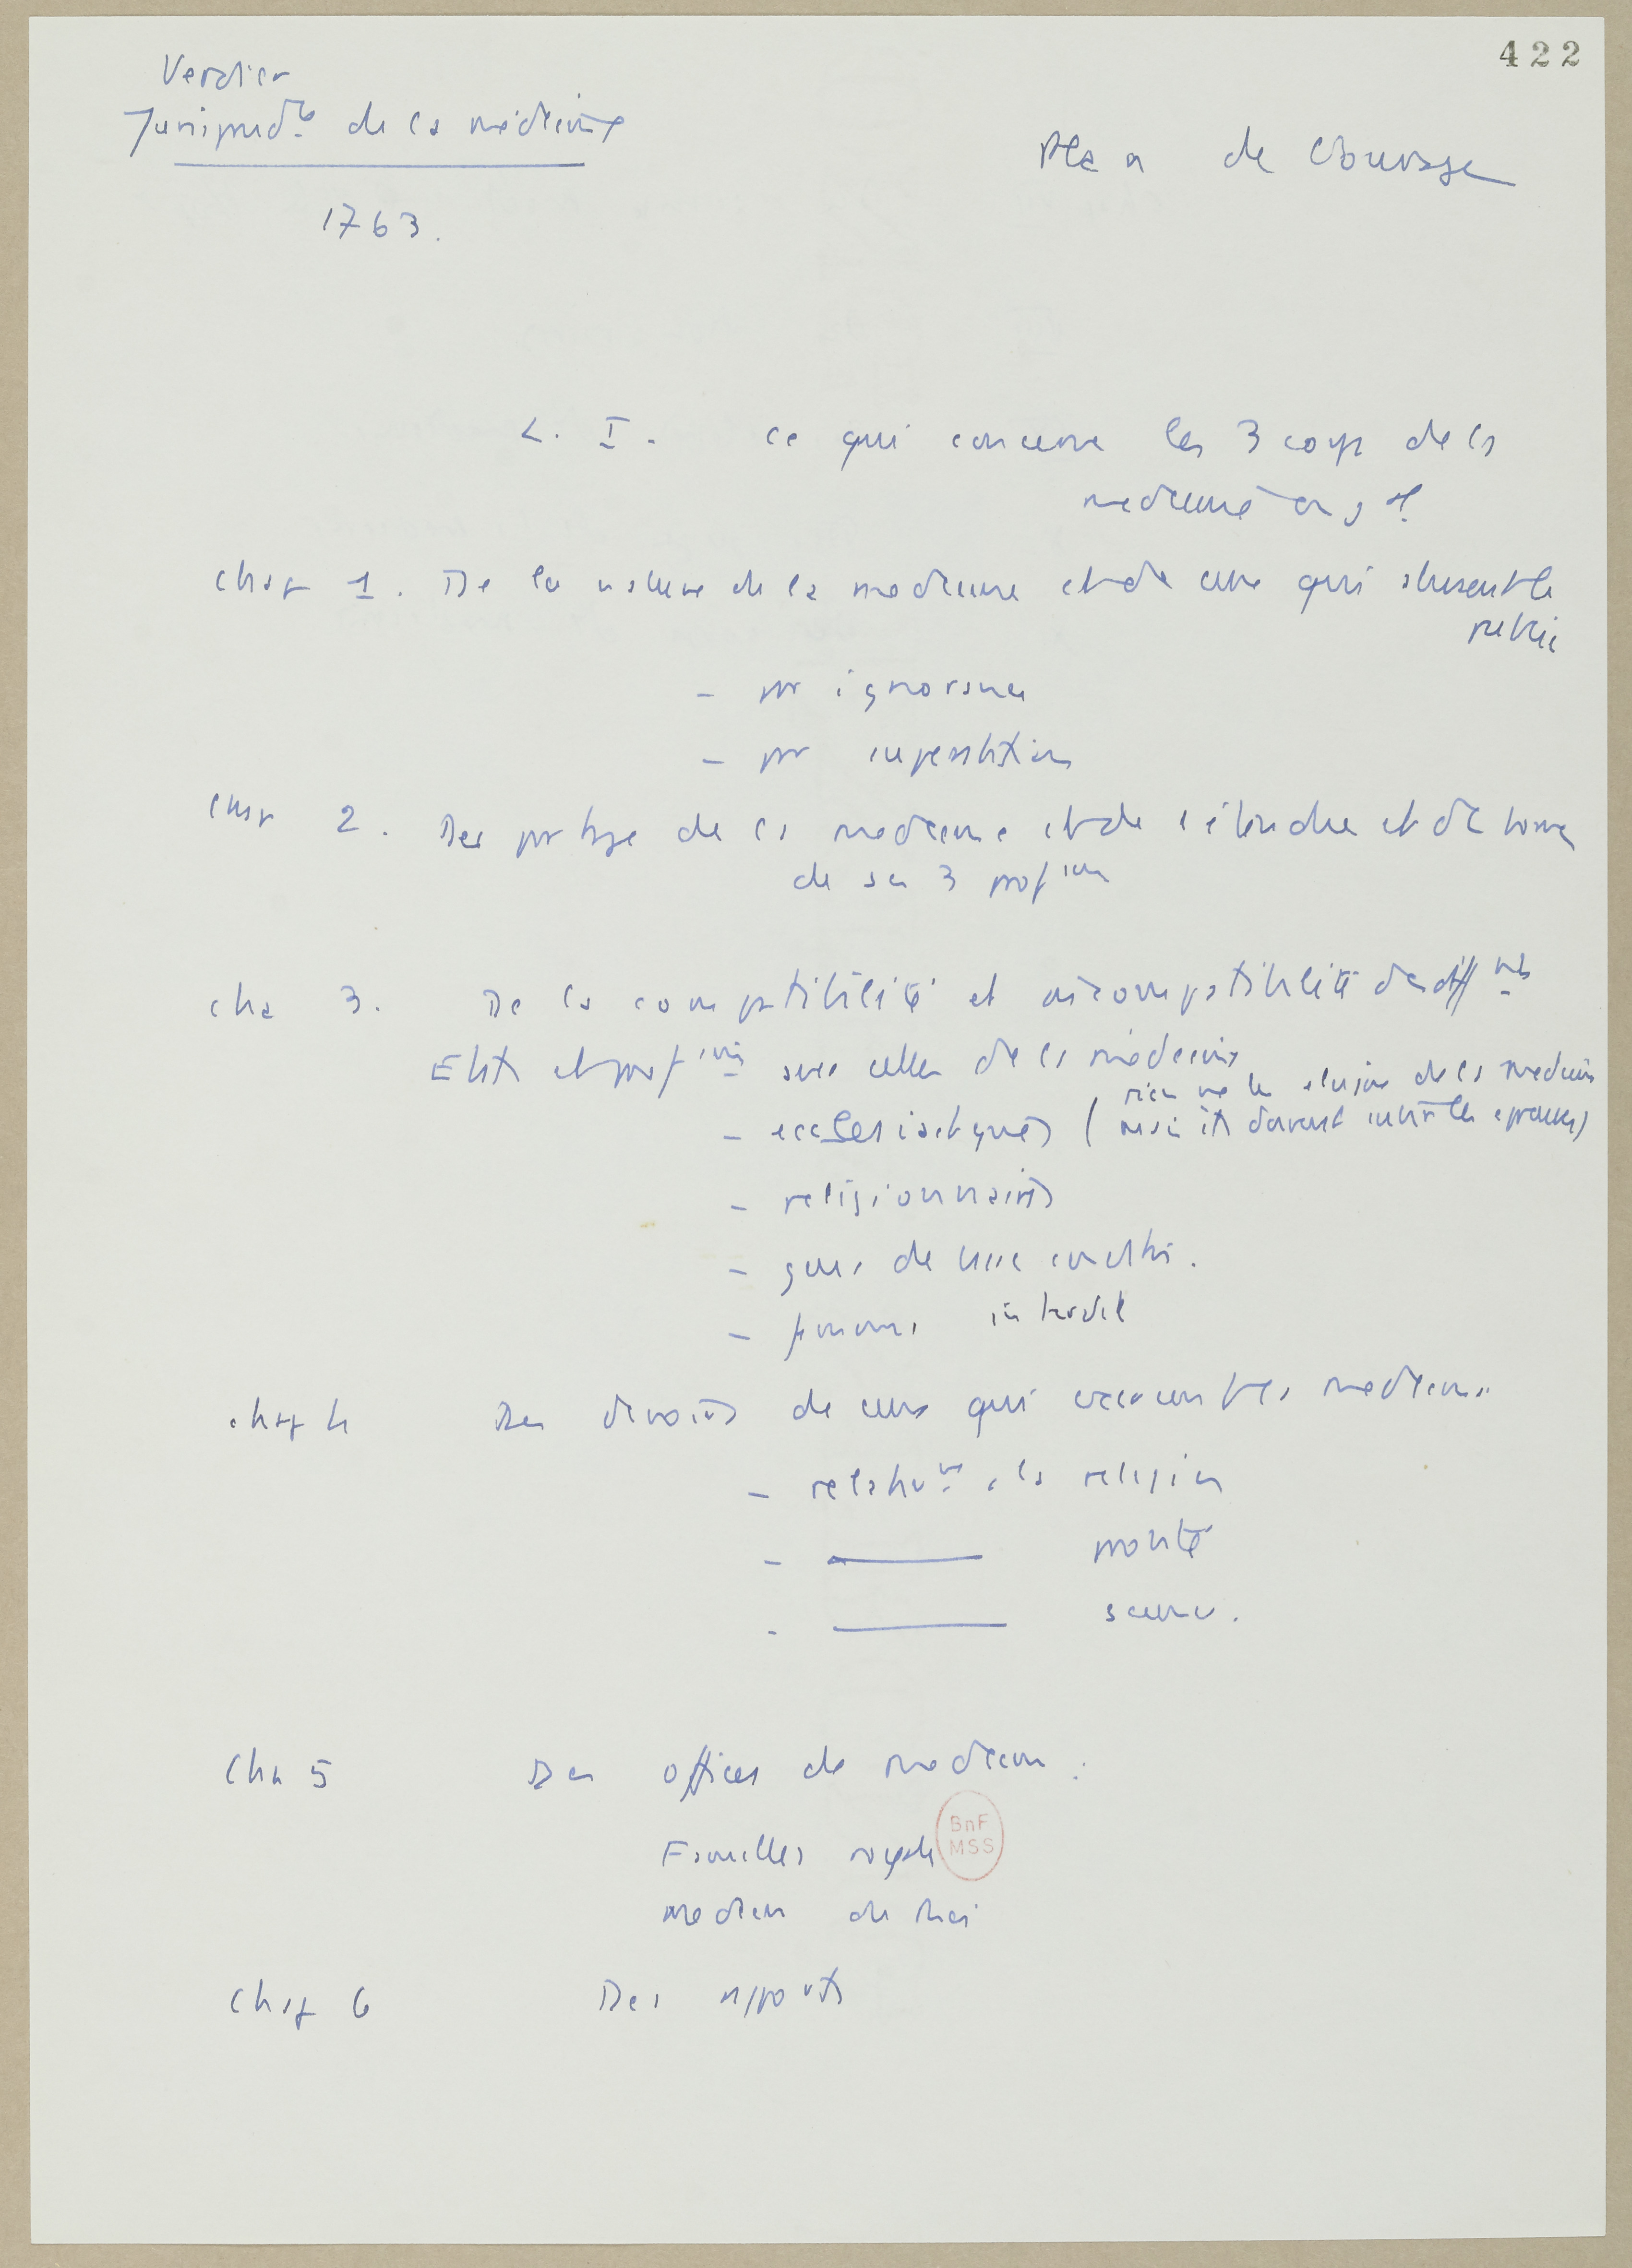 422
Verdier
Jurisprudce de la médecine
1763.
Plan de l'ouvrage
L. I. ce qui concerne les 3 corps de la
medecine en gal
Chap 1. De la nature de la medecine et de ceux qui abusent le
public
- par ignorance
- par superstition
Chap 2. Du partage de la medecine et de l'étendue et de bornes
de ses 3 profions
Cha 3. De la compatibilité et incompatibilité des diffnts
Etats et profions avec celles de la médecine
- ecclesiastiques (rien ne les eloigne de la medecine
mais ils doivent subir les epreuves)
- religionnaires
- gens de
- femmes interdit
chap 4 Des devoirs de ceux qui exercent les medecines
- relativt à la religion
- ——— probité
- ——— science.
Cha 5 Des offices de medecin :
Familles royale
medecin du Roi
Chap 6 Des rapports
BnF
MSS